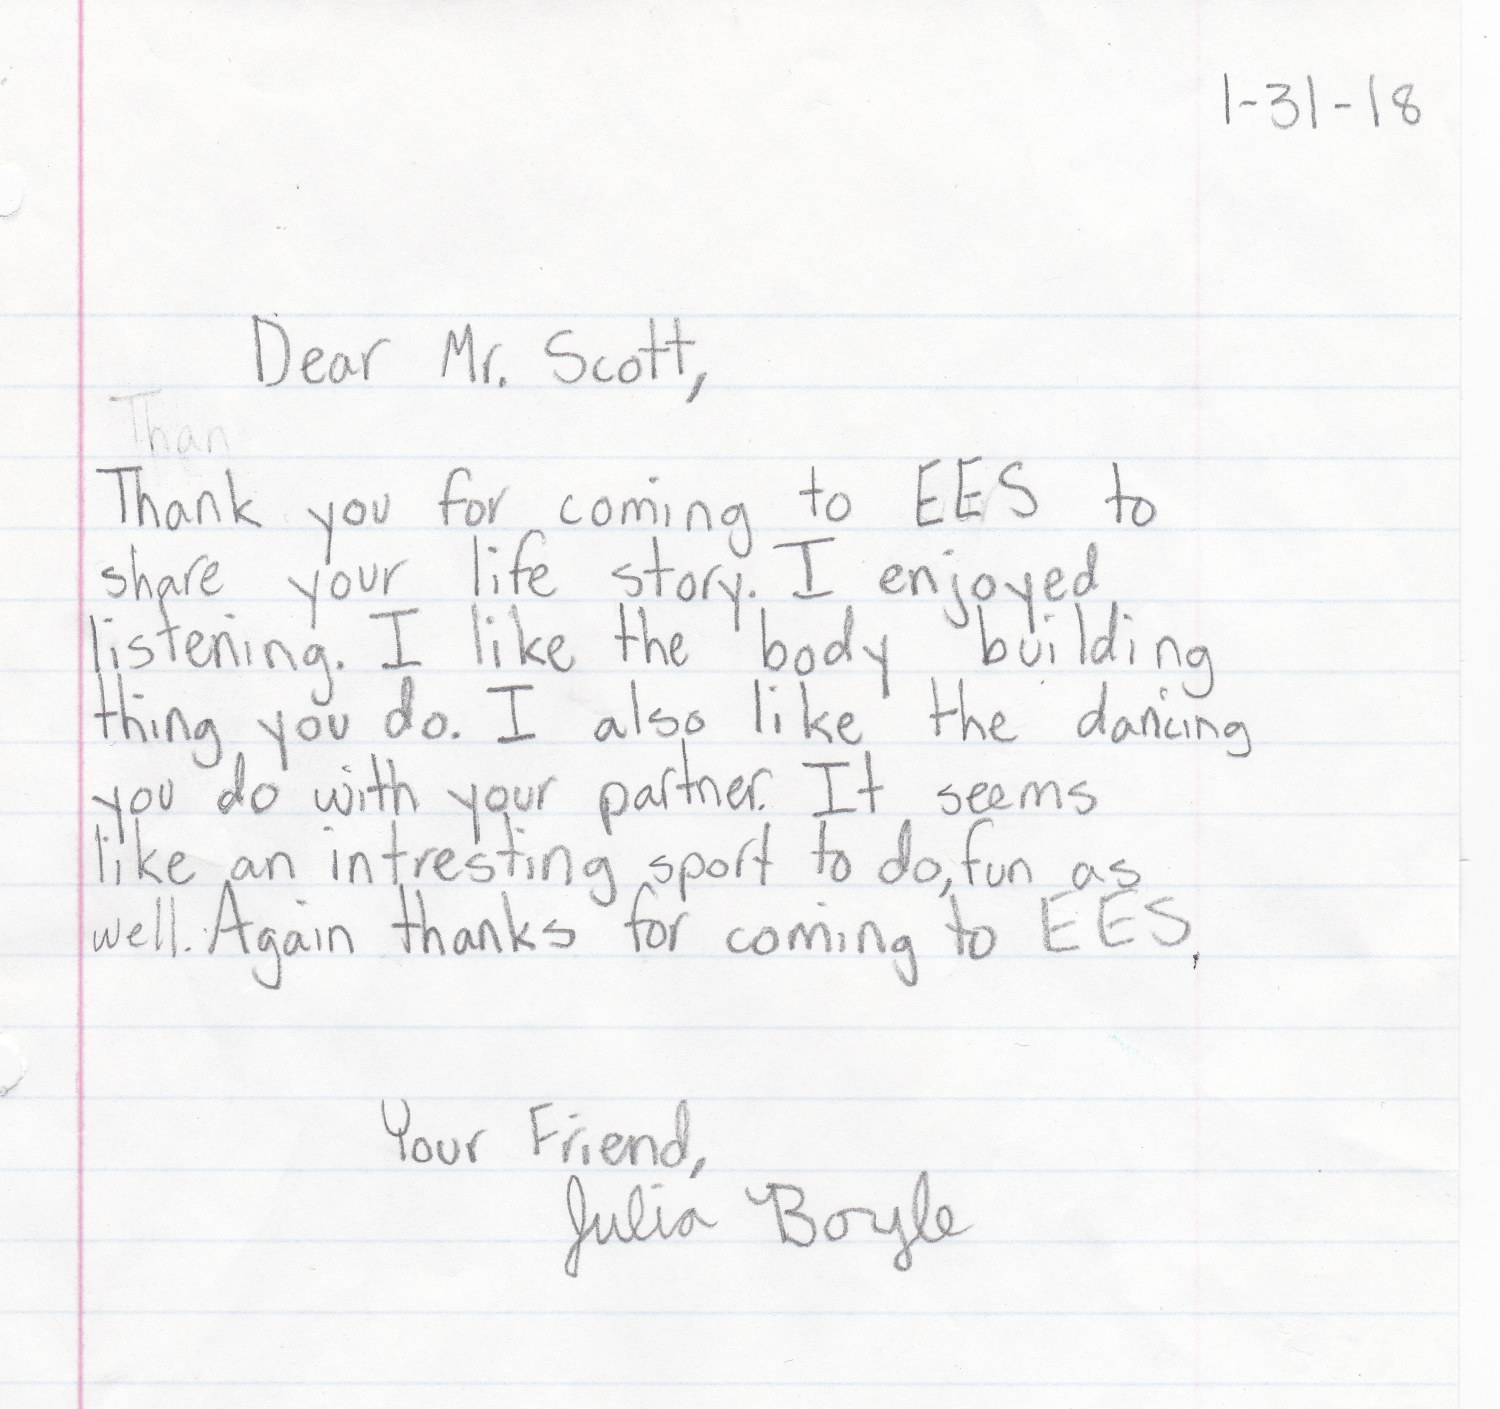 1-31-18
Dear Mr. Scott,
Than
Thank you for coming to EES to
share your life story. I enjoyed
listening. I like the body building
thing you do. I also like the dancing
you do with your partner. It seems
like an intresting sport to do, fun as
well. Again thanks for coming to EES.
Your Friend,
Julia Boyle